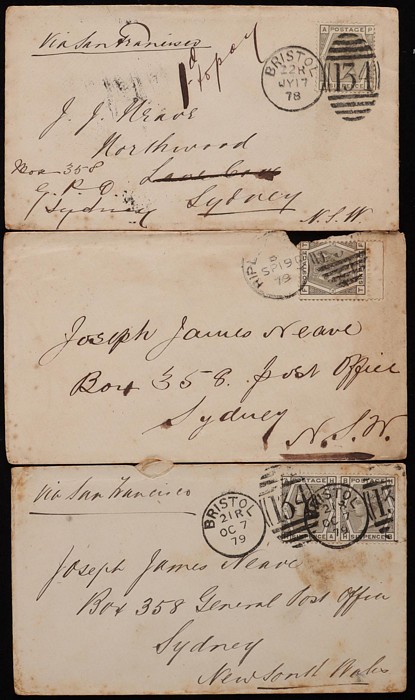 Via San Francisco
1d to pay
BRISTOL
22R
JY 17
78
134
A POSTAGE P
J. J. Neave
Northwood
Lane Cove
Box 358
G. P. O.
Sydney
Sydney
N.S.W.
SP 19
79
POSTAGE
Joseph James Neave
Box 358. Post Office
Sydney
N.S.W.
Via San Francisco
BRISTOL
21R
OC 7
79
134
BRISTOL
21R
OC 7
79
A POSTAGE H
B POSTAGE H
SIXPENCE
Joseph James Neave
Box 358 General Post Office
Sydney
New South Wales